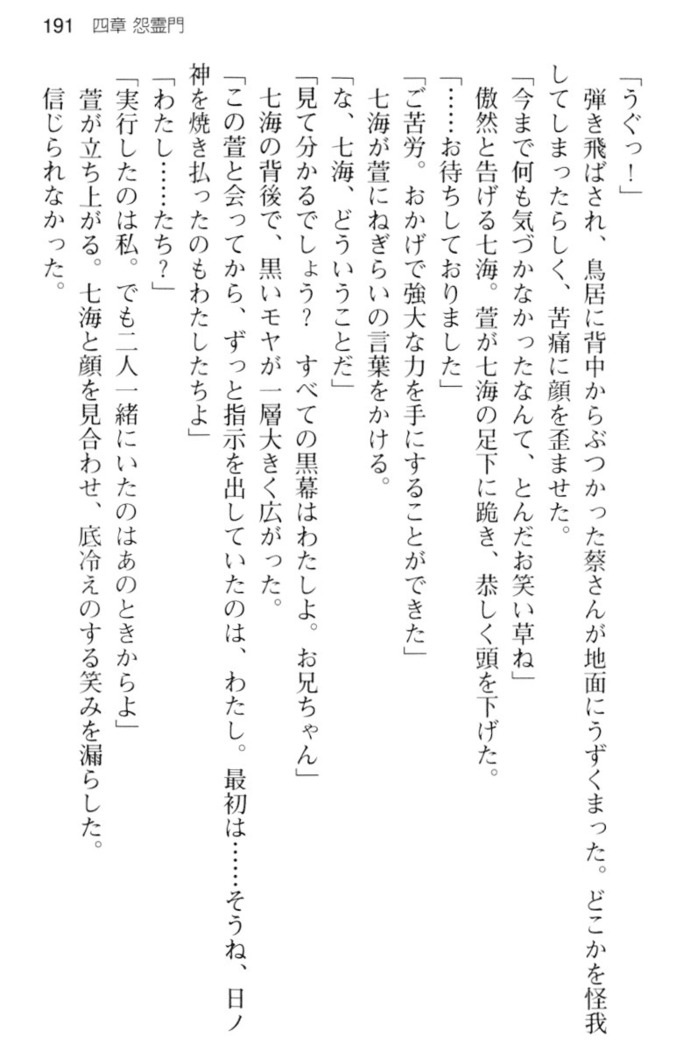 191 四章 怨霊門
「うぐっ！」
弾き飛ばされ、鳥居に背中からぶつかった蔡さんが地面にうずくまった。どこかを怪我
してしまったらしく、苦痛に顔を歪ませた。
「今まで何も気づかなかったなんて、とんだお笑い草ね」
傲然と告げる七海。萱が七海の足下に跪き、恭しく頭を下げた。
「……お待ちしておりました」
「ご苦労。おかげで強大な力を手にすることができた」
七海が萱にねぎらいの言葉をかける。
「な、七海、どういうことだ」
「見て分かるでしょう？　すべての黒幕はわたしよ。お兄ちゃん」
七海の背後で、黒いモヤが一層大きく広がった。
「この萱と会ってから、ずっと指示を出していたのは、わたし。最初は……そうね、日ノ
神を焼き払ったのもわたしたちよ」
「わたし……たち？」
「実行したのは私。でも二人一緒にいたのはあのときからよ」
萱が立ち上がる。七海と顔を見合わせ、底冷えのする笑みを漏らした。
信じられなかった。